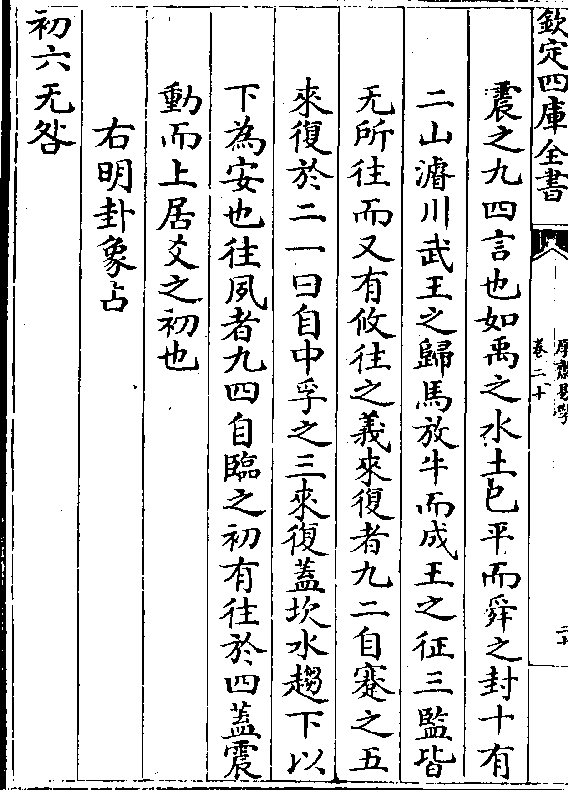 欽定四庫全書
卷二十
震之九四言也如禹之水土已平而舜之封十有
二山濬川武王之歸馬放牛而成王之征三監皆
无所往而又有攸往之義來復者九二自蹇之五
來復於二一曰自中孚之三來復蓋坎水趨下以
下為安也往夙者九四自臨之初有往於四蓋震
動而上居爻之初也
右明卦象占
初六无咎